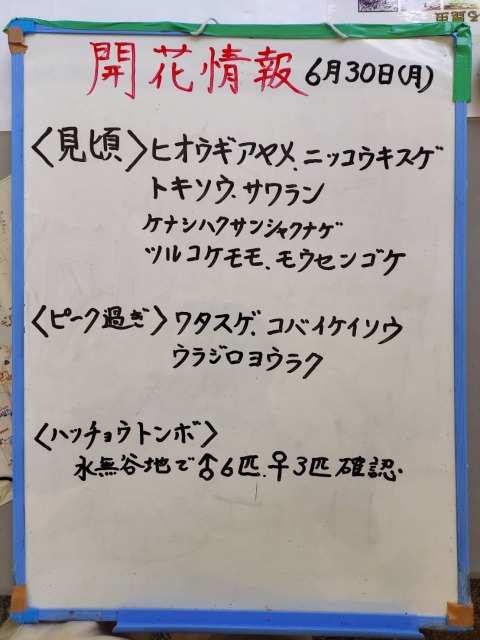 開花情報 6月30日(月)
〈見頃〉ヒオウギアヤメ、ニッコウキスゲ
トキソウ、サワラン
ケナシハクサンシャクナゲ
ツルコケモモ、モウセンゴケ
〈ピーク過ぎ〉ワタスゲ、コバイケイソウ
ウラジロヨウラク
〈ハッチョウトンボ〉
水無谷地で♂6匹、♀3匹確認.